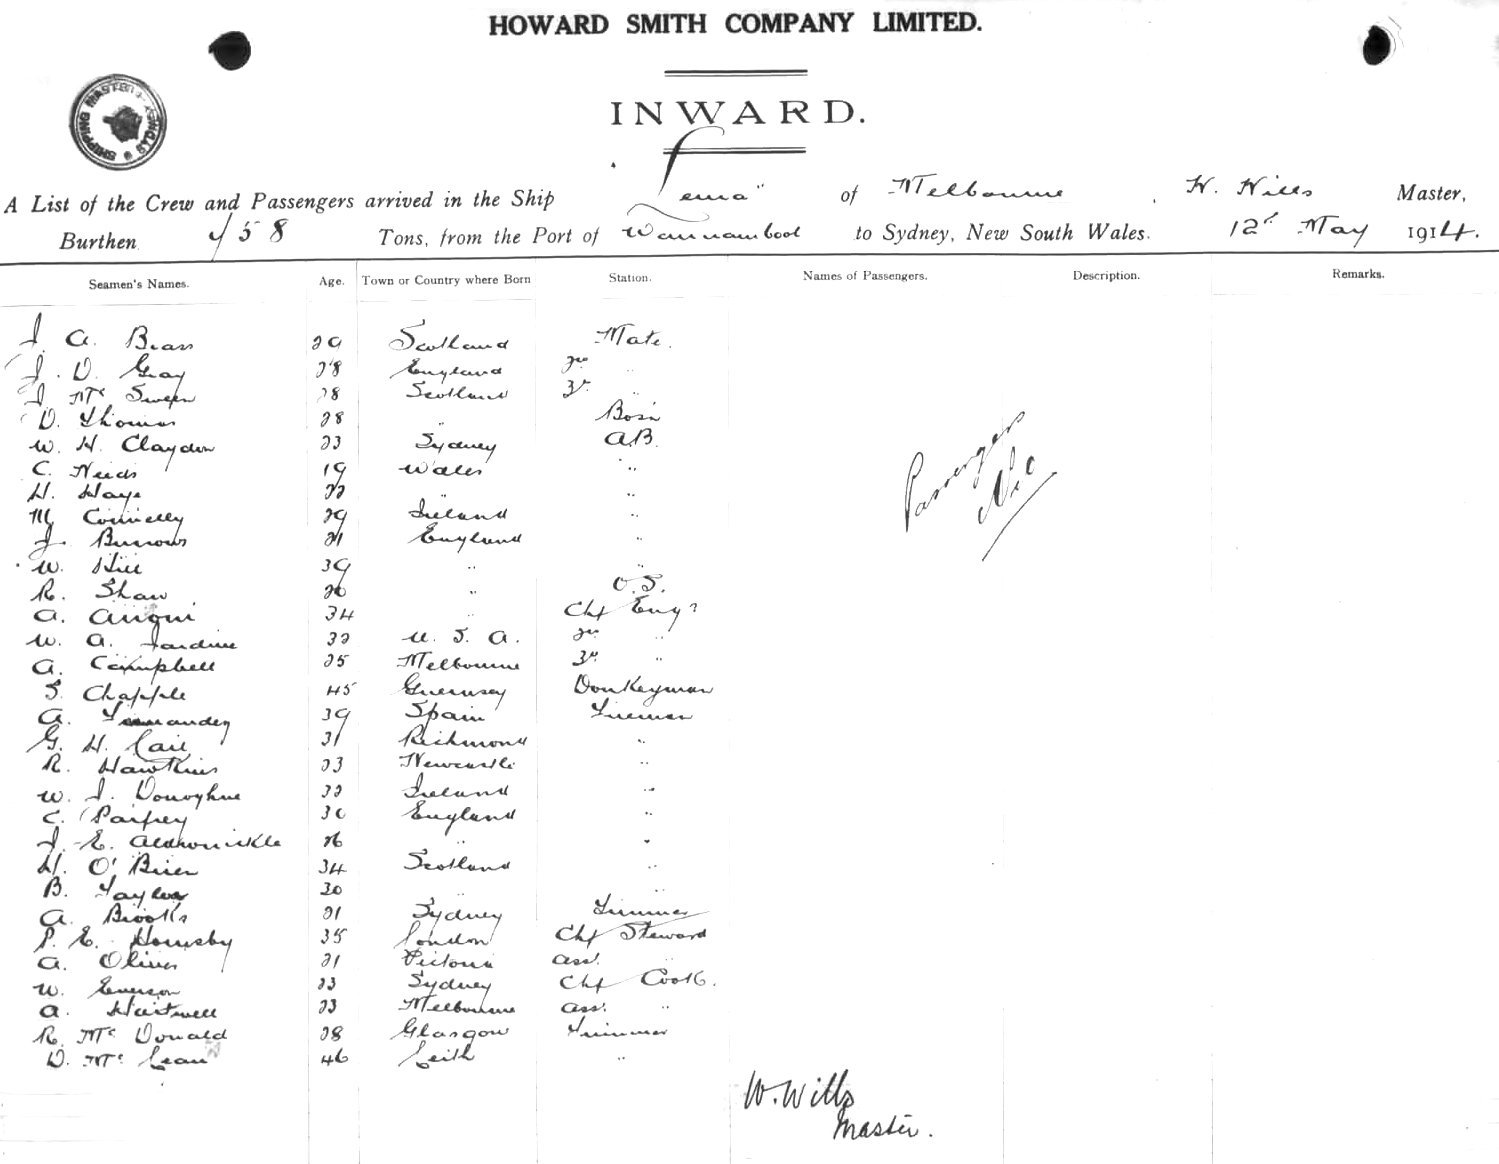 HOWARD SMITH COMPANY LIMITED.
SHIPPING MASTER SYDNEY
INWARD.
A List of the Crew and Passengers arrived in the Ship "Tema" of Melbourne, W. Wills Master,
Burthen 458 Tons, from the Port of Warrnambool to Sydney, New South Wales. 12th May 1914.
Seamen's Names. Age. Town or Country where Born Station. Names of Passengers. Description. Remarks.
J A. 29 Scotland Mate.
J. D. Gray 28 England 2nd "
J McSween 28 Scotland 3rd "
D. Thomas 28 " Bosn
W. H. Claydon 23 Sydney A.B.
C. 19 Wales "
H. Haye 22 "
M Connelly 29 Ireland "
J. Burrows 21 England "
W. Hill 39 " "
R. Shaw 20 " O.S.
A. 34 " Chf Engr
W. A. Jardine 32 U. S. A. 2nd "
A. Campbell 25 Melbourne 3rd "
S. Chapple 45 Guernsey Donkeyman
A. Fernandez 39 Spain Fireman
G. H. Cail 31 Richmond "
R. Hawkins 23 Newcastle "
W. J. Donoghue 32 Ireland "
C. Paifrey 30 England "
J. E. 26 " "
H. O'Brien 34 Scotland "
B. Taylor 30 " "
A. Brooks 21 Sydney Trimmer
P. E. Hornsby 35 London Chf Steward
A. Oliver 21 Victoria ass. "
W. Everson 23 Sydney Chf Cook.
A. Hartwell 23 Melbourne ass. "
R. McDonald 28 Glasgow Trimmer
D. McLean 46 Leith "
Passengers
Nil
W. Wills
Master.